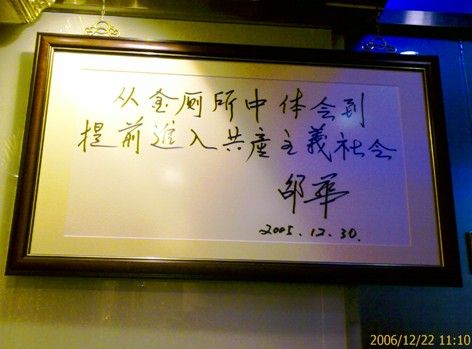 从金厕所中体会到
提前進入共產主義社会
邵華
2005.12.30.
2006/12/22 11:10